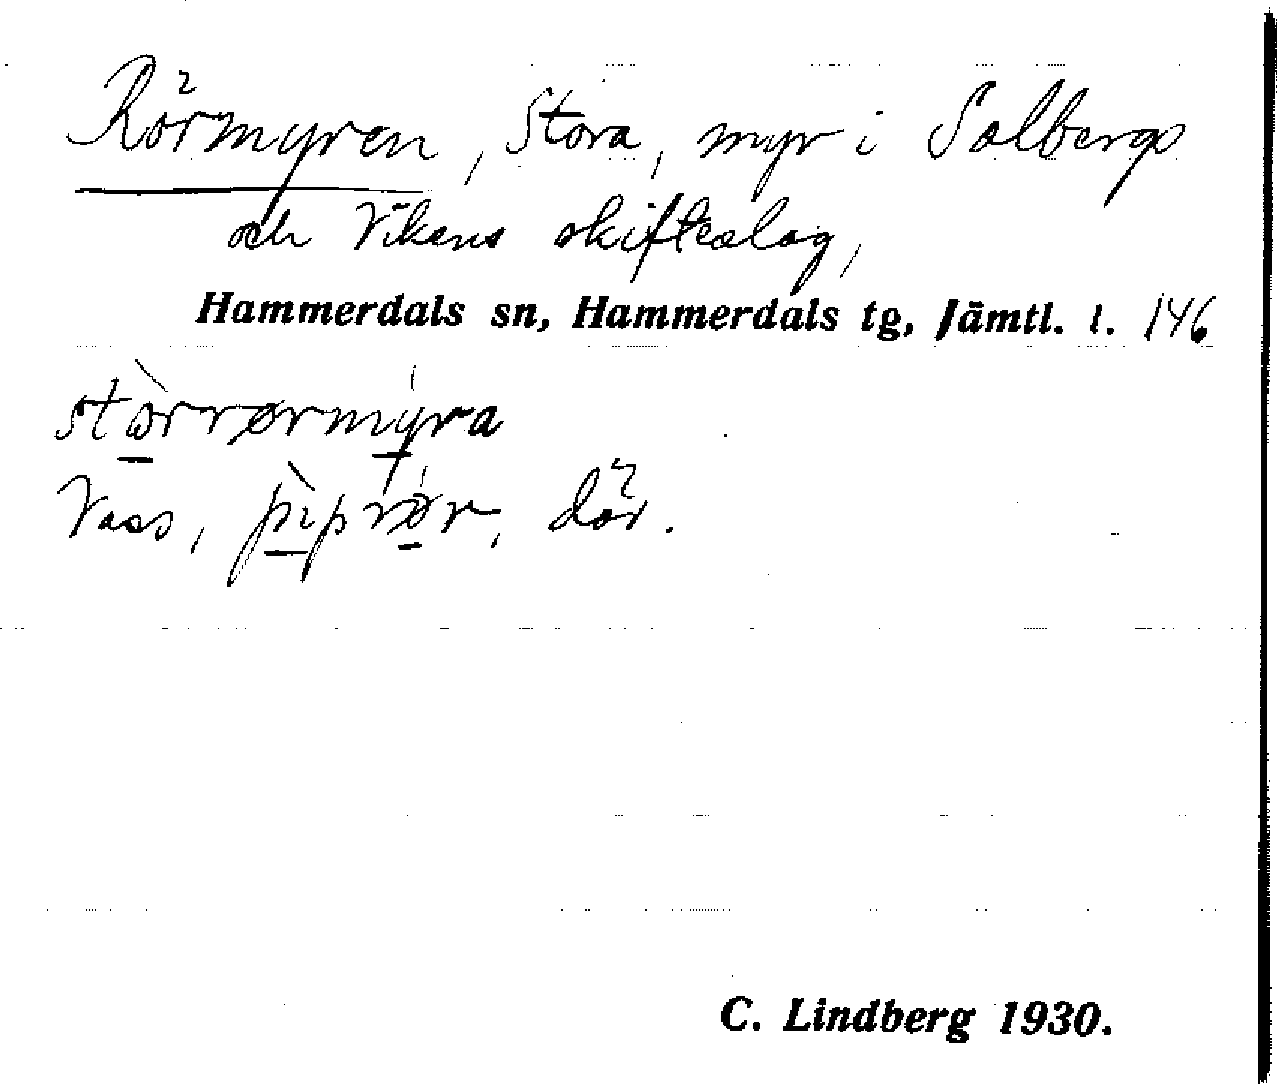 Rörmyren, Stora, myr i Solbergs
och Vikens skifteslag,
Hammerdals sn, Hammerdals tg, Jämtl. l. 146
stòrrørmýra
Vass, pìprǿr, där.
C. Lindberg 1930.